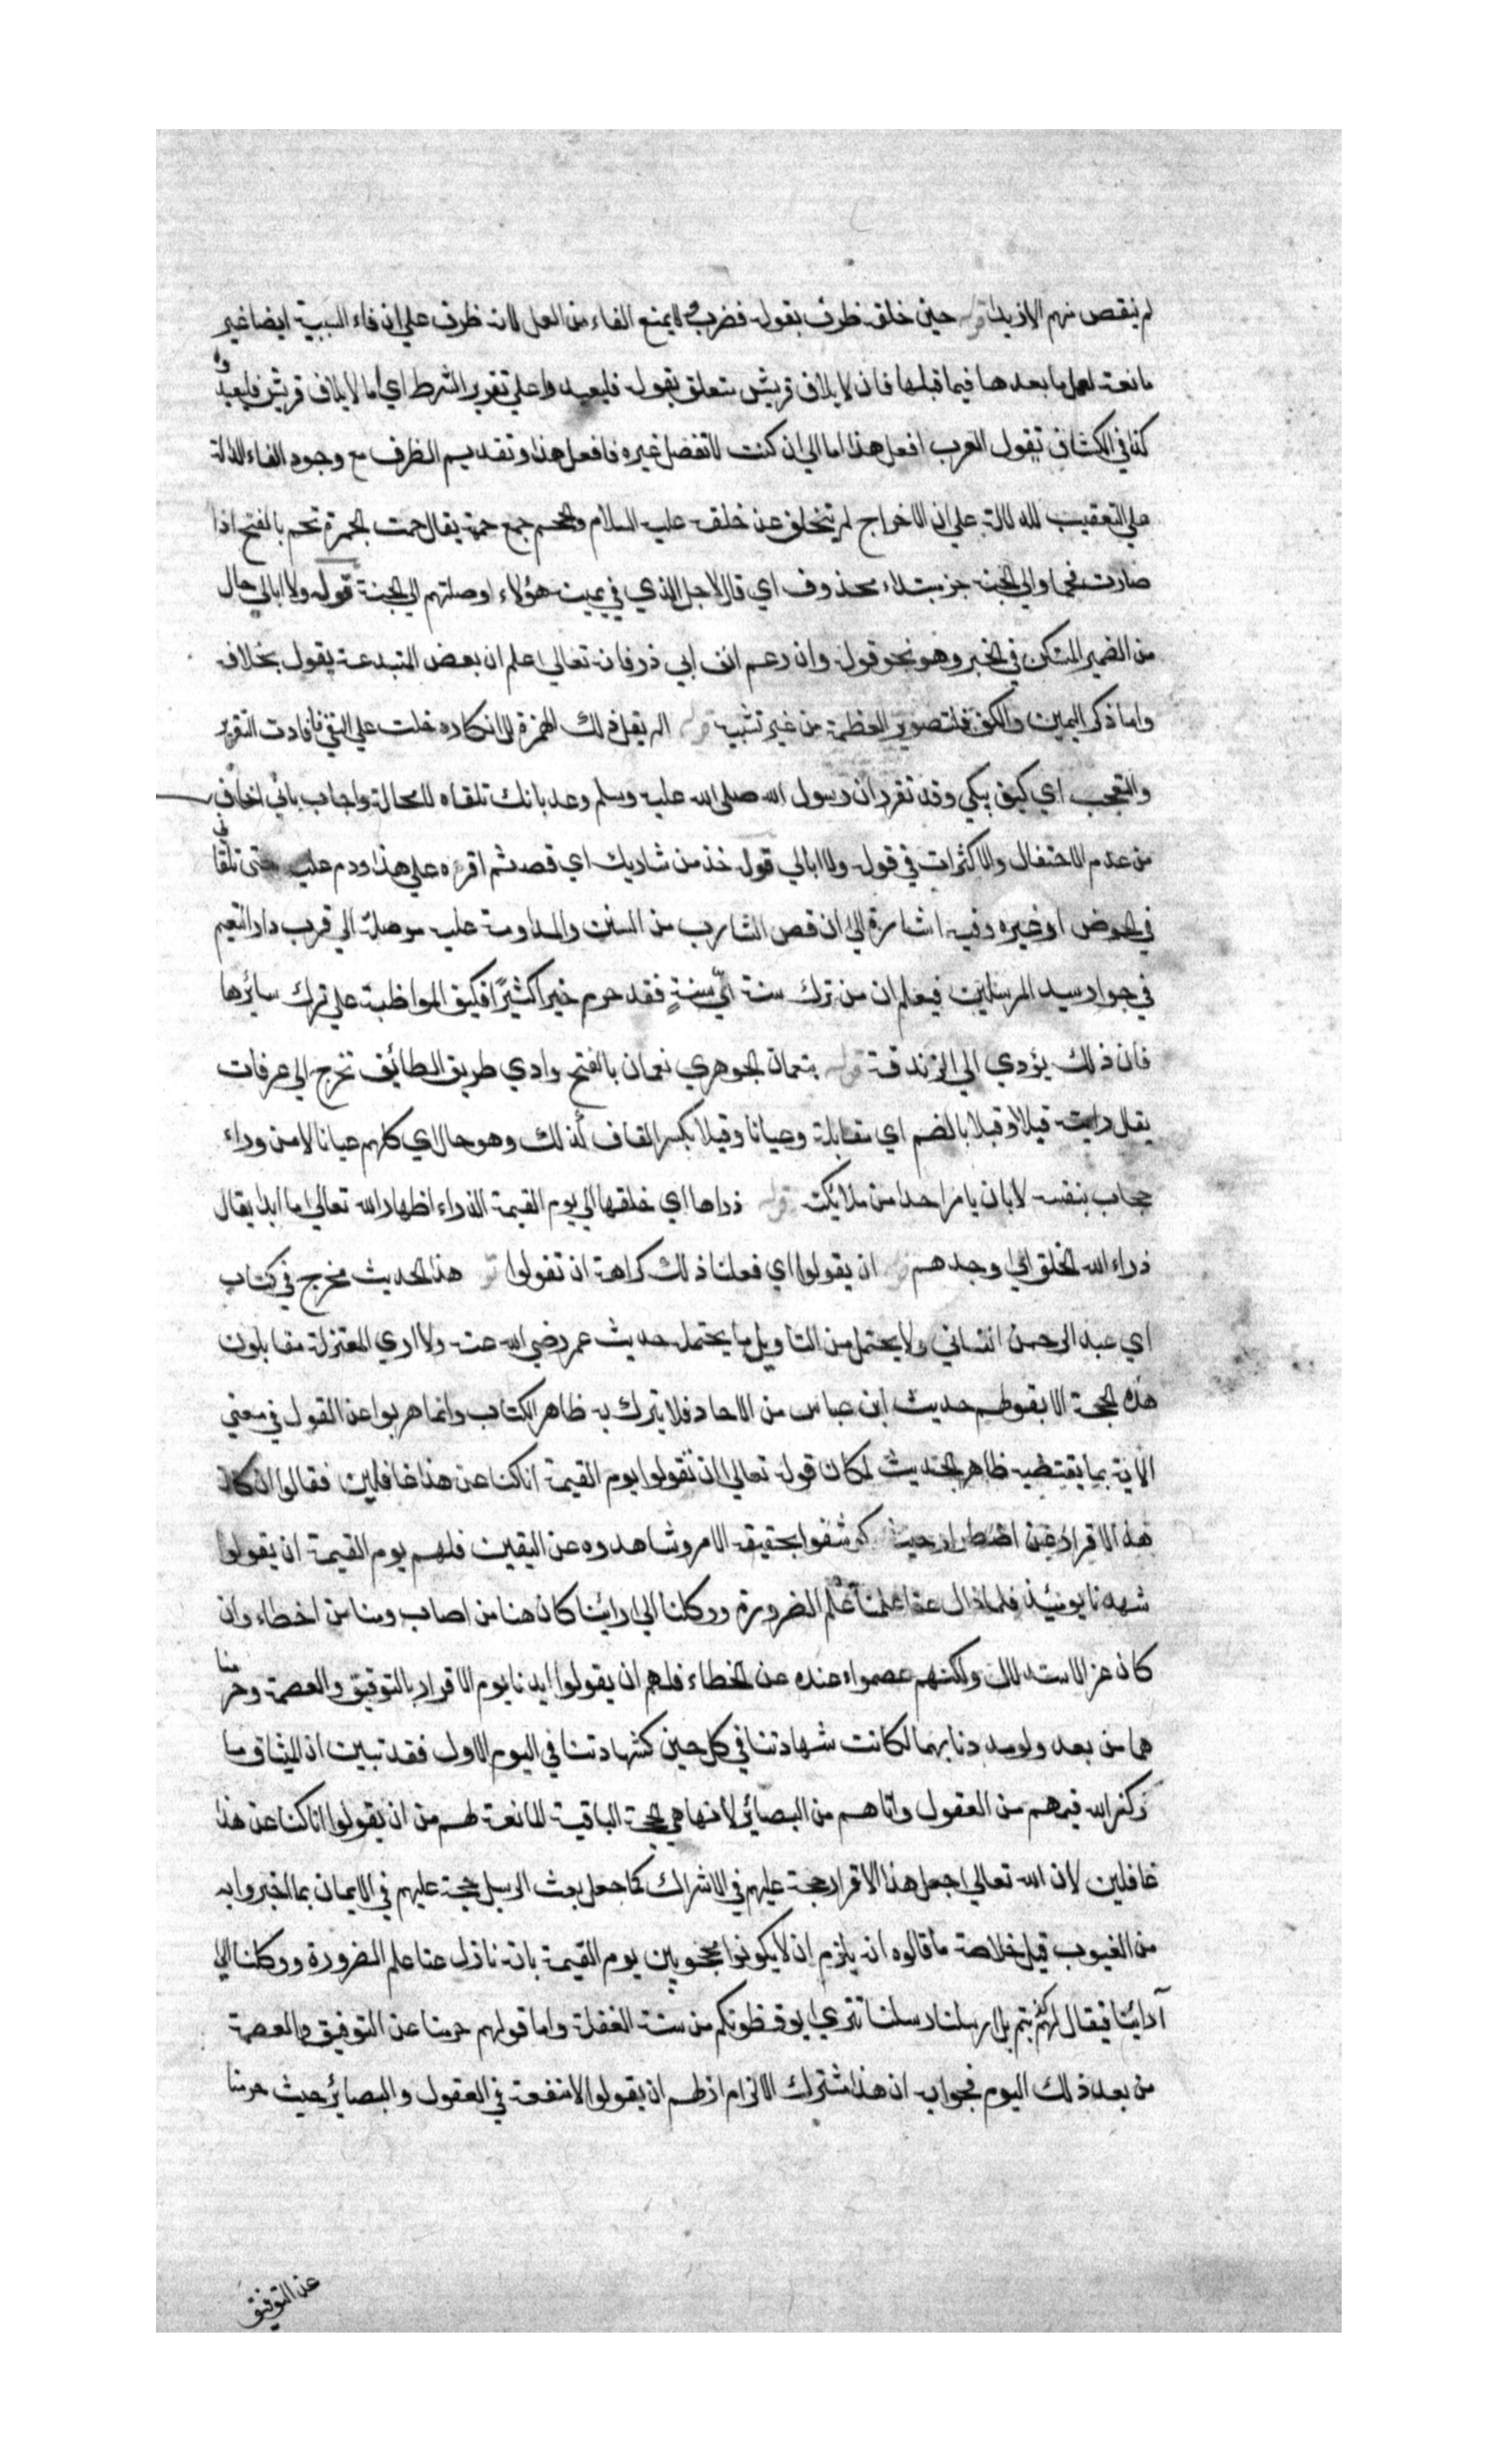 لم ينقص منهم الازيد قوله حين خلقه ظرف بقوله فضرب ولا يمنع الفاء من العمل لانه ظرف علي ان فاء السببية ايضا غير
مانعة لعمل ما بعدها فيما قبلها فان لايلاف قريش متعلق بقوله فليعبدوا علي تقدير الشرط اي اما لايلاف قريش فليعبدوه
كذا في الكشاف تقول العرب افعل هذا اما لي ان كنت لا تفضل غيره فافعل هذا وتقديم الظرف مع وجود الفاء الدالة
علي التعقيب للدلالة علي ان الاخراج لم يتخلف عن خلقه عليه السلام والحمم جمع حممة يقال حمت الجمرة تحم بالفتح اذا
صارت فحما والي الجنة خبر مبتداء محذوف اي قال لاجل الذي في يمينه هؤلاء اوصلتهم الي الجنة قوله ولا ابالي حال
من الضمير المستكن في الخبر وهو نحو قوله وان رغم انف ابي ذر فانه تعالي اعلم ان بعض المبتدعة يقول بخلافه
واما ذكر اليمين والكف فلتصوير العظمة من غير تشبيه قوله الم يقل لك الهمزة للانكار دخلت علي النفي فافادت التقرير
والتعجب اي كيف يبكي وقد تقرر ان رسول الله صلى الله عليه وسلم وعد بانك تلقاه لا محالة واجاب باني اخاف
من عدم الاحتفال والاكتراث في قوله ولا ابالي قوله خذ من شاربك اي قصه ثم اقره علي هذا ودم عليه حتى تلقاني
في الحوض او غيره وفيه اشارة الي ان قص الشارب من السنن والمداومة عليه موصلة الي قرب دار النعيم
في جوار سيد المرسلين فيعلم ان من ترك سنة اي سنةٍ فقد حرم خيرا كثيرًا فكيف المواظبة علي ترك سائرها
فان ذلك يؤدي الي الزندقة قوله بنعمان الجوهري نعمان بالفتح وادي طريق الطائف تخرج الي عرفات
يقل رايته قبلا وقبلا بالضم اي مقابلة وعيانا وقبلا بكسر القاف كذلك وهو حال اي كلهم عيانا لا من وراء
حجاب بنفسه لا بان يامر احدا من ملائكته قوله ذراها اي خلقها الي يوم القيمة الذراء اظهار الله تعالي ما ابدا يقال
ذراء الله الخلق اي اوجدهم قوله ان يقولوا اي فعلنا ذلك كراهة ان تقولوا قوله هذا الحديث مخرج في كتاب
ابي عبد الرحمن النسائي ولا يحتمل من التاويل ما يحتمله حديث عمر رضي الله عنه ولا اري المعتزلة مقابلون
هذه الحجة الا بقولهم حديث ابن عباس من الاحاد فلا يترك به ظاهر الكتاب وانما هربوا عن القول في معني
الآية بما يقتضيه ظاهر الحديث لمكان قوله تعالي ان تقولوا يوم القيمة انا كنا عن هذا غافلين فقالوا ان كان
هذا الاقرار عن اضطرار حيث كوشفوا بحقيقة الامر وشاهدوه عن اليقين فلهم يوم القيمة ان يقولوا
شهدنا يومئيذ فلما زال عنا علمنا علم الضرورة ووكلنا الي ارائينا كان منا من اصاب ومنا من اخطاء وان
كان عن الاستدلال ولكنهم عصموا عنده عن الخطاء فلهم ان يقولوا ايدنا يوم الاقرار بالتوفيق والعصمة وحرمنا
هما من بعد ولو مددنا بهما لكانت شهادتنا في كل حين كشهادتنا في اليوم الاول فقد تبين ان الميثاق ما
ركز الله فيهم من العقول واتاهم من البصائر لانها هي الحجة الباقية المانعة لهم من ان يقولوا انا كنا عن هذا
غافلين لان الله تعالي جعل هذا الاقرار حجة عليهم في الاشراك كما جعل بعث الرسل حجة عليهم في الايمان بما اخبروا به
من الغيوب قيل خلاصة ما قالوه انه يلزم ان لا يكونوا محجوجين يوم القيمة بانه نازل عنا علم الضرورة ووكلنا الي
آرائينا فيقال لهم كذبتم بل ارسلنا رسلنا تتري يوقظونكم من سنة الغفلة واما قولهم حرمنا عن التوفيق والعصمة
من بعد ذلك اليوم فجوابه ان هذا مشترك الالزام اذ لهم ان يقولوا لا منفعة في العقول والبصائر حيث حرمنا
عن التوفيق